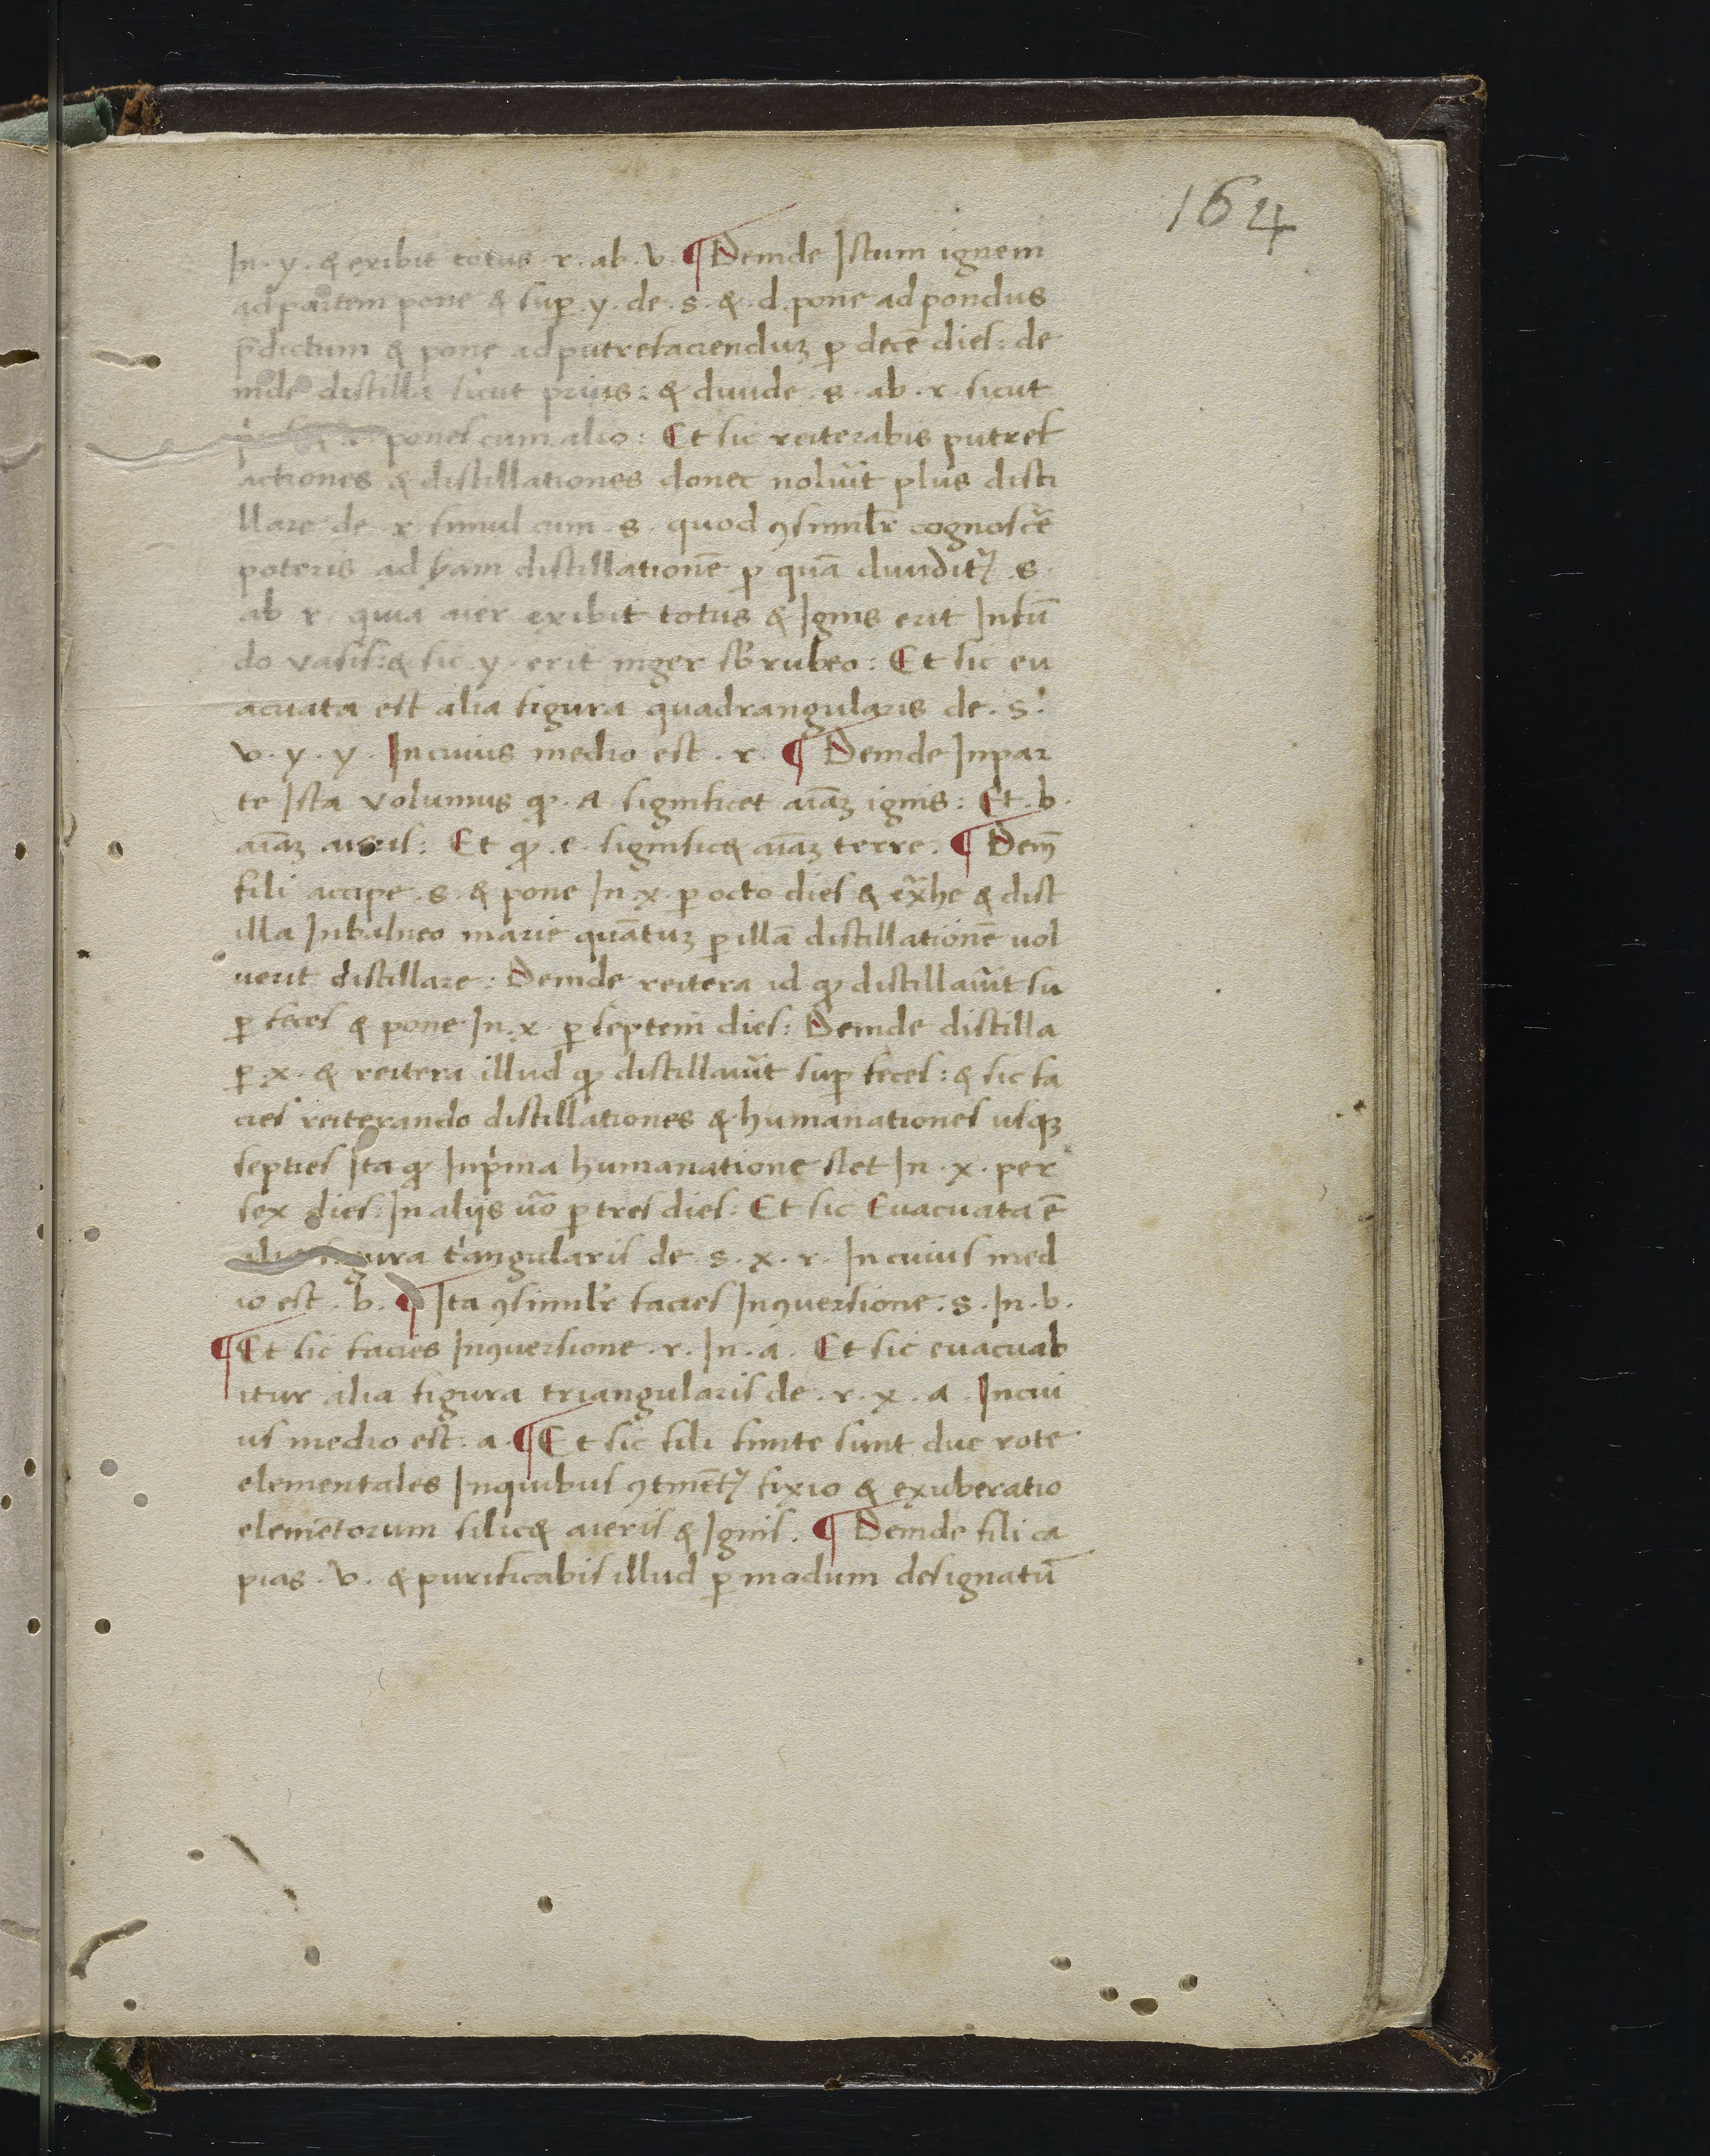 164
In . y . & exibit totus . r . ab . v . ¶ Deinde Istum ignem
ad partem pone & sup̱ . y . de . s . & . d . pone ad pondus
p̄dictum & pone ad putrefacienduꝫ ꝑ decē dies : de
inde distilla sicut prius : & diuide . s . ab . r . sicut
pones cum alio : Et sic reiterabis putref
actiones & distillationes donec noluīt plus disti
llare de . r . simul cum . s . quod ꝯsimilr̄ cognosc̄e
poteris ad distillationē ꝑ quā diuidit᷑ . s .
ab . r . quia aier exibit totus & Ignis erit In fū
do vasis : & sic . y . erit niger sb̄ rubeo : Et sic eu
acuata est alia figura quadrangularis de . s .
v . y . y . In cuius medio est . r . ¶ Deinde In par
te Ista volumus ꝙ . a . significet aīaꝫ ignis : Et . b .
aīaꝫ aieris : Et ꝙ . c . significꝫ aīaꝫ terre . ¶ Dein̄
fili accipe . s . & pone In . x . ꝑ octo dies & ex̄he & dist
illa In balneo marie quātuꝫ ꝑ illā distillationē uol
uerit distillare : Deinde reitera id ꝙ distillauīt su
ꝑ feces & pone In . x . ꝑ septem dies : Deinde distilla
ꝑ . x . & reitera illud ꝙ distillauīt suꝑ feces : & sic fa
cies reiterando distillationes & humanationes usqꝫ
septies Ita ꝙ In pͥma humanatione stet In . x . per
sex dies : In alijs ūo ꝑ tres dies : Et sic Euacuata ē
alia figura tͥangularis de . s . x . r . In cuius med
io est . b . ¶ Ita ꝯsimilr̄ facies In ꝯuersione . s . In . b .
¶ Et sic facies In ꝯuersione . r . In . a . Et sic euacuab
itur alia figura triangularis de . r . x . a . In cui
us medio est : a . ¶ Et sic fili finite sunt due rote
elementales In quibus ꝯtinēt᷑ fixio & exuberatio
elemētorum silicꝫ aieris & Ignis . ¶ Deinde fili ca
pias . v . & purificabis illud ꝑ modum designatū